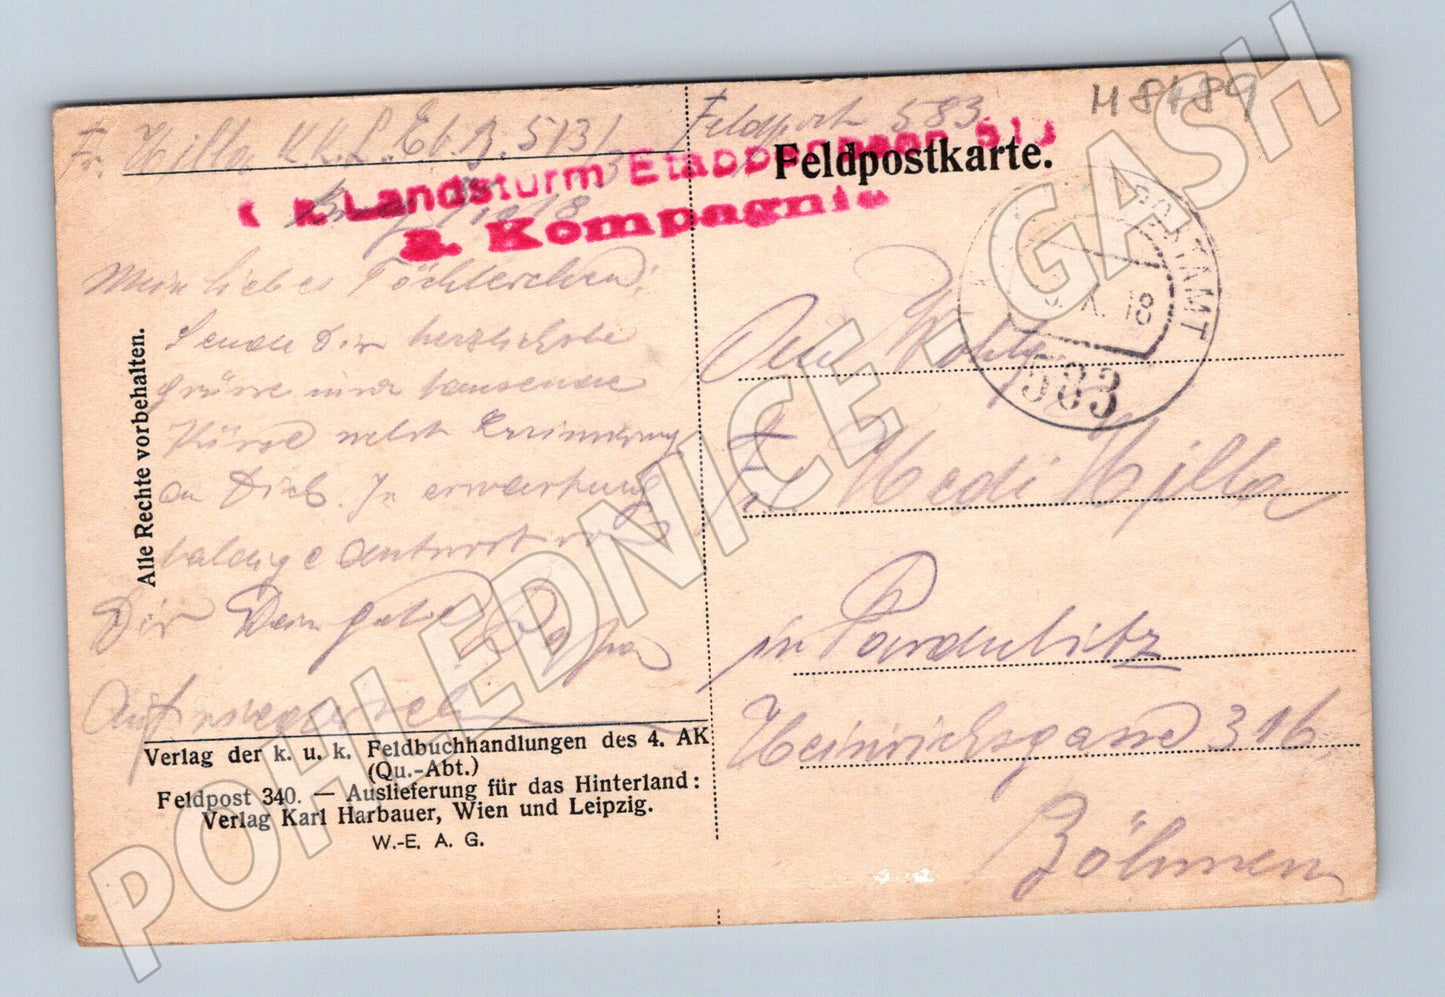 H8489
Fr. Hilla K.K.L. Et. B. 513/ Feldpost 583
k. k. Landsturm Etappenbaon 513
3. Kompagnie
Feldpostkarte.
POSTAMT
X. 18
583
Mein liebes Töchterchen!
Sende Dir herzlichste
Grüsse und tausende
Küsse nebst Erinnerung
an Dich. In erwartung
baldige Antwort
Dir Dein Papa
Auf wiedersehen
Alle Rechte vorbehalten.
Verlag der k. u. k. Feldbuchhandlungen des 4. AK
(Qu.-Abt.)
Feldpost 340. — Auslieferung für das Hinterland:
Verlag Karl Harbauer, Wien und Leipzig.
W.-E. A. G.
Frl Hedi Hilla
in Pardubitz
Heinrichsgasse 316,
Böhmen
POHLEDNICE - GASH